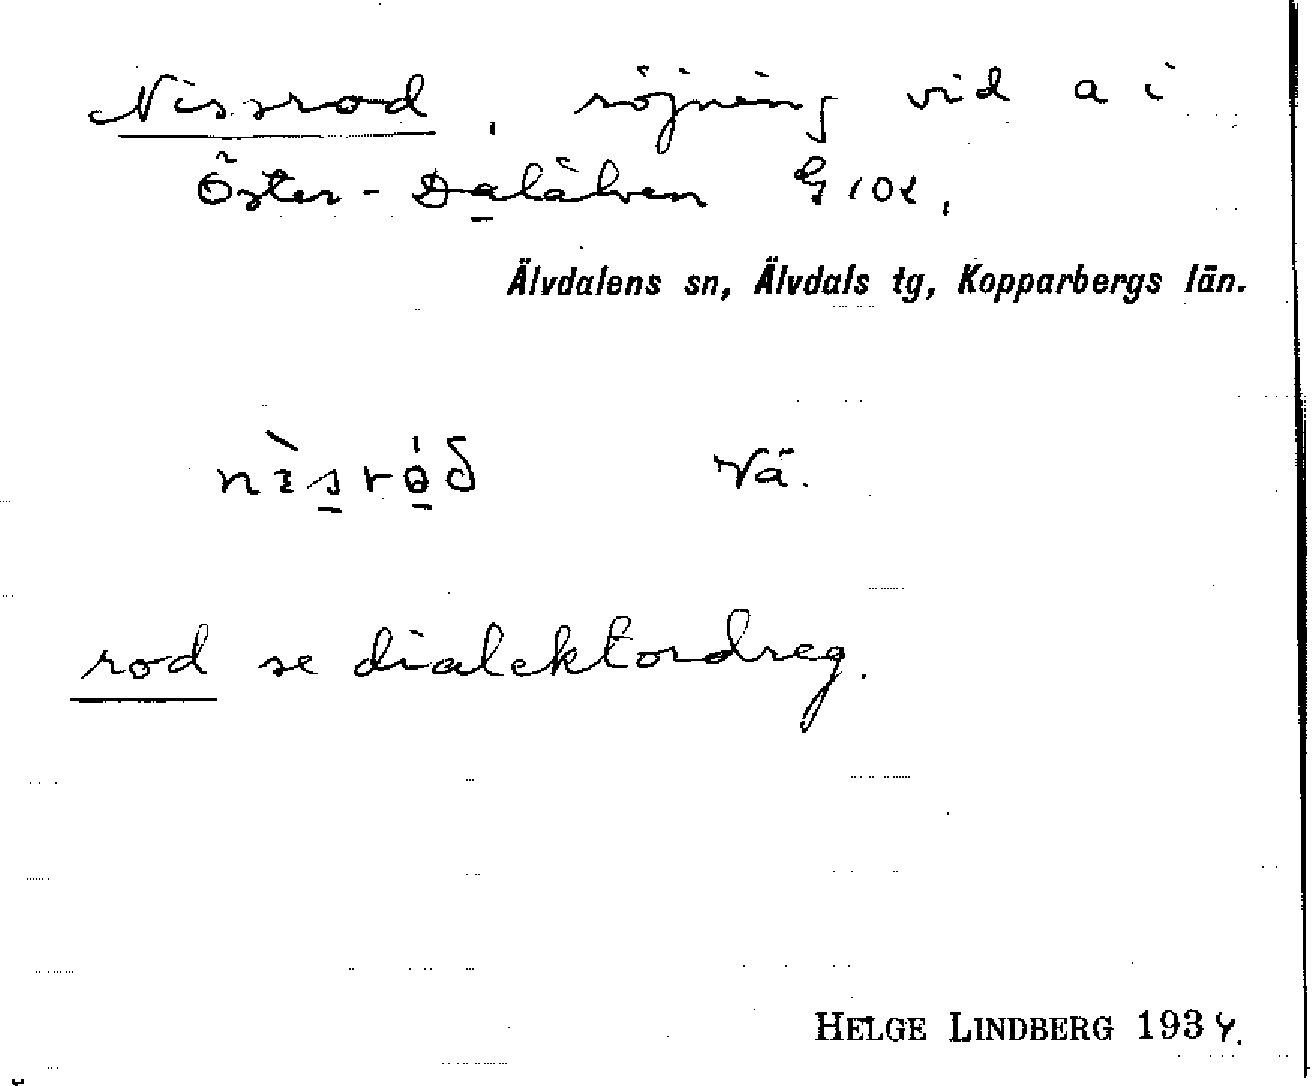 Nissrod, röjning vid a i
Öster-Dalälven G 10
Älvdalens sn, Älvdals tg, Kopparbergs län.
Vä.
rod se dialektordreg.
HELGE LINDBERG 1934.